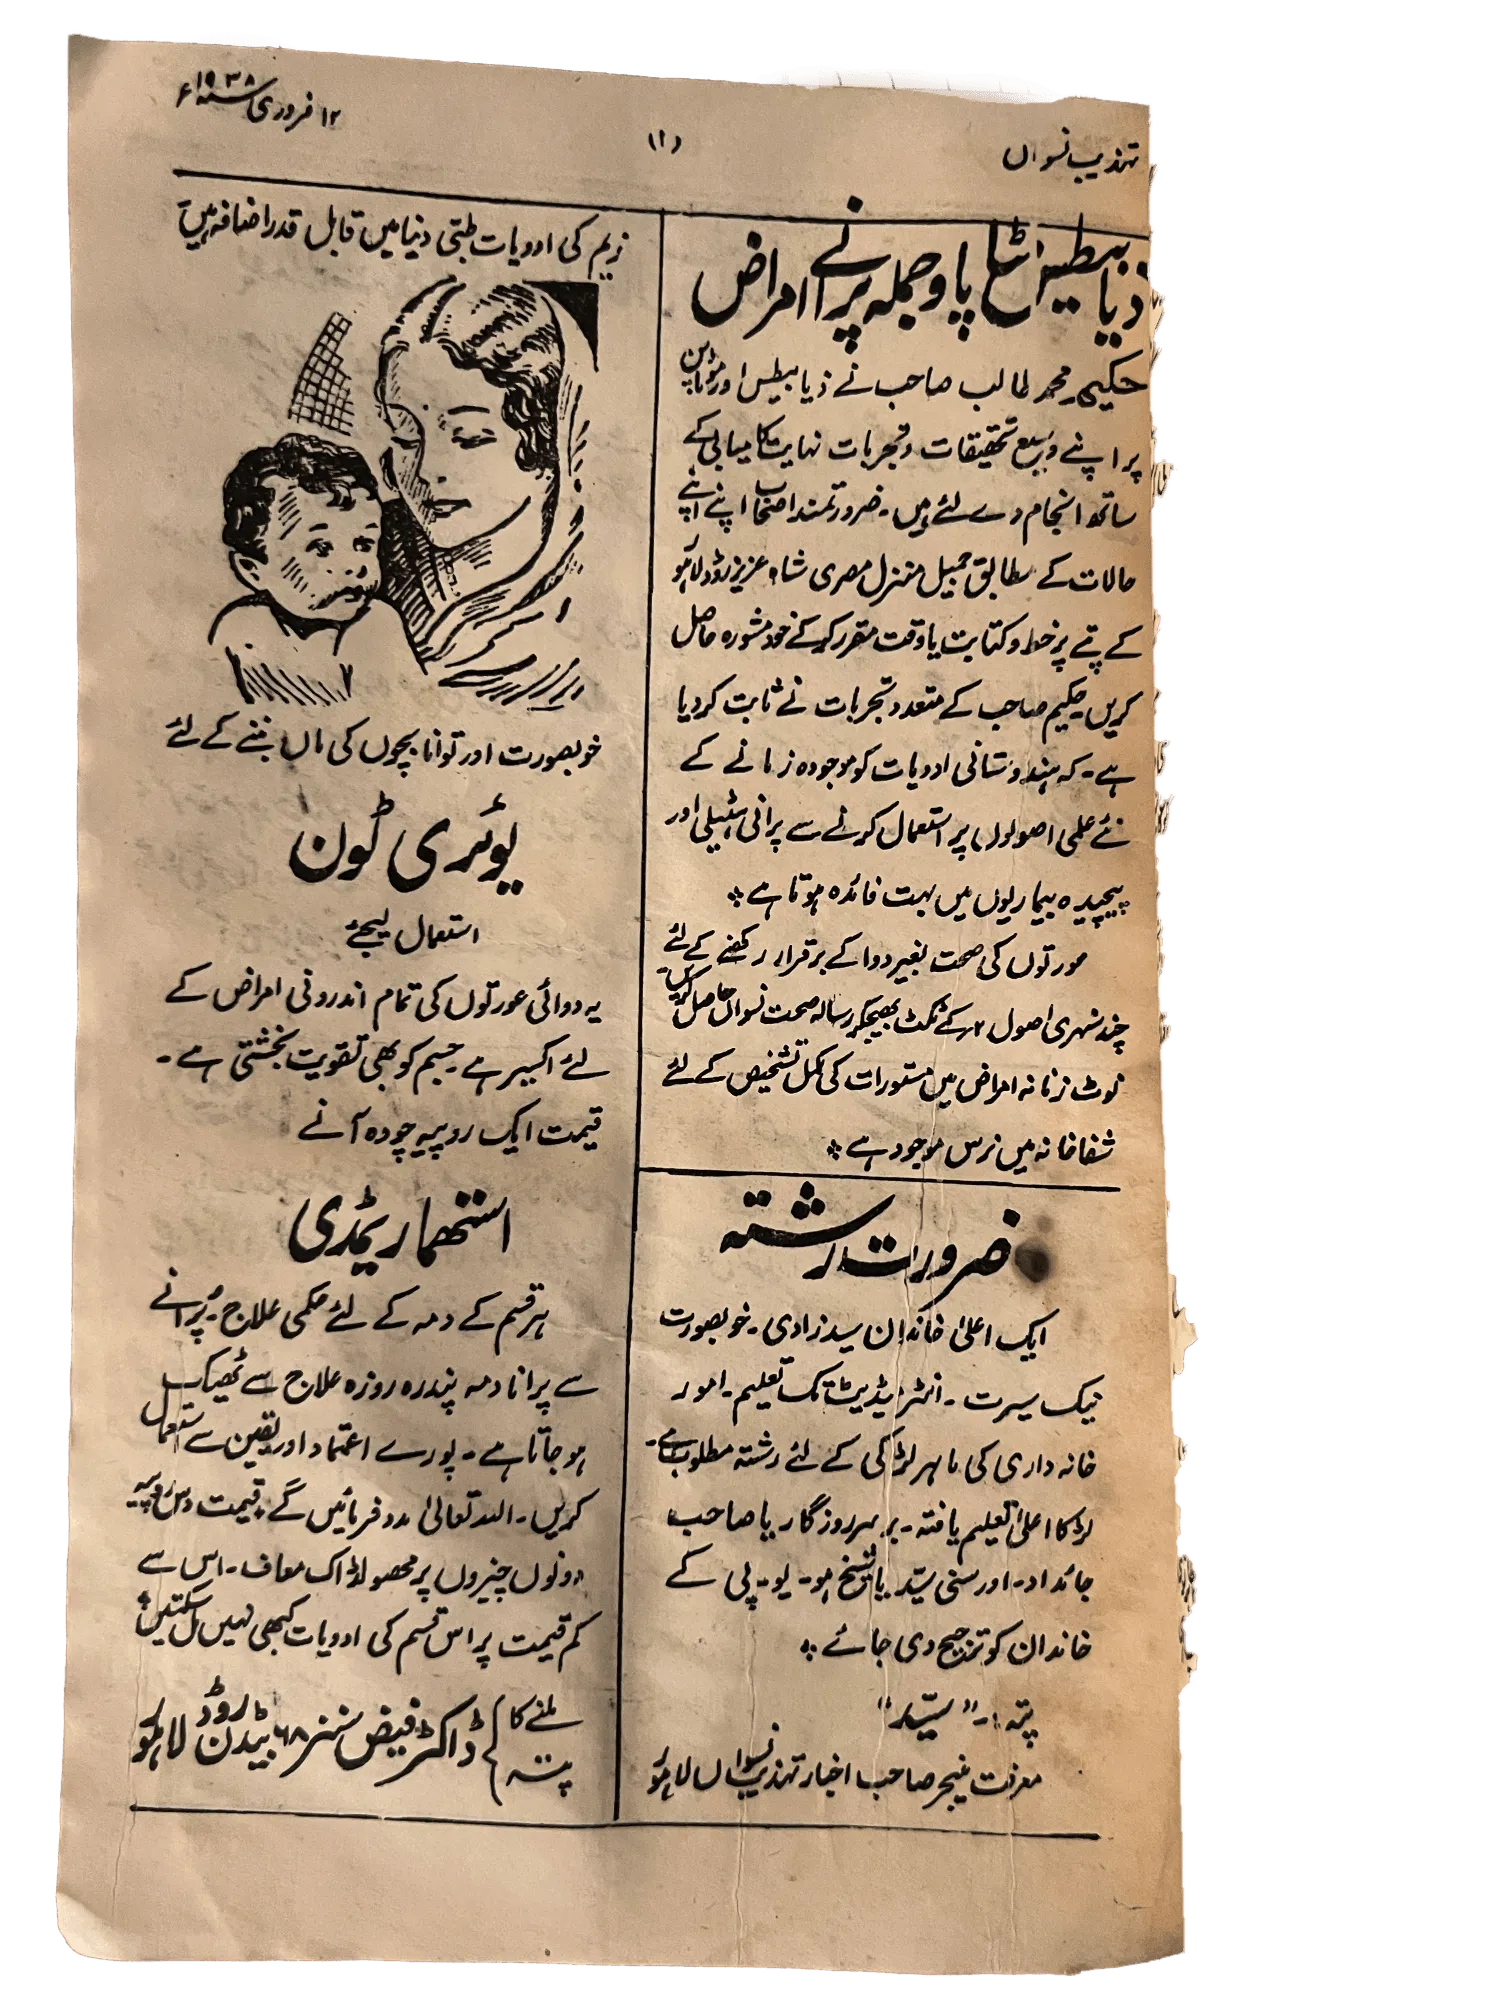 تہذیب نسواں
۱۲ فروری ۱۹۳۸ء
ذیابیطس موٹاپا و جملہ پرانے امراض
حکیم محمد طالب صاحب نے ذیابیطس اور موٹاپے
پر اپنے وسیع تحقیقات و تجربات نہایت کامیابی کے
ساتھ انجام دے لئے ہیں۔ ضرورتمند اصحاب اپنے اپنے
حالات کے مطابق جمیل منزل مصری شاہ عزیز روڈ لاہور
کے پتے پر خط و کتابت یا وقت مقرر کر کے خود مشورہ حاصل
کریں۔ حکیم صاحب کے متعدد تجربات نے ثابت کر دیا
ہے۔ کہ ہندوستانی ادویات کو موجودہ زمانے کے
نئے علمی اصولوں پر استعمال کرنے سے پرانی ہٹیلی اور
پیچیدہ بیماریوں میں بہت فائدہ ہوتا ہے ٭
عورتوں کی صحت بغیر دوا کے برقرار رکھنے کے لئے
چند سنہری اصول ۲؍ کے ٹکٹ بھیجکر رسالہ صحت نسواں حاصل کریں۔
نوٹ زنانہ امراض میں مستورات کی مکمل تشخیص کے لئے
شفاخانہ میں نرس موجود ہے ٭
ضرورت رشتہ
ایک اعلیٰ خاندان سیدزادی۔ خوبصورت
نیک سیرت۔ انٹرمیڈیٹ تک تعلیم۔ امور
خانہ داری کی ماہر لڑکی کے لئے رشتہ مطلوب ہے۔
لڑکا اعلیٰ تعلیم یافتہ۔ برسر روزگار یا صاحب
جائداد۔ اور سنی سیّد یا شیخ ہو۔ یو۔ پی کے
خاندان کو ترجیح دی جائے ٭
پتہ :۔ "سیّد"
معرفت منیجر صاحب اخبار تہذیب نسواں لاہور
زیم کی ادویات طبّی دنیا میں قابل قدر اضافہ ہیں
خوبصورت اور توانا بچوں کی ماں بننے کے لئے
یوٹری ٹون
استعمال کیجئے
یہ دوائی عورتوں کی تمام اندرونی امراض کے
لئے اکسیر ہے۔ جسم کو بھی تقویت بخشتی ہے۔
قیمت ایک روپیہ چودہ آنے
استھما ریمڈی
ہر قسم کے دمہ کے لئے حکمی علاج۔ پُرانے
سے پرانا دمہ پندرہ روزہ علاج سے ٹھیک
ہو جاتا ہے۔ پورے اعتماد اور یقین سے استعمال
کریں۔ اللہ تعالیٰ مدد فرمائیں گے۔ قیمت دس روپیہ
دونوں چیزوں پر محصولڈاک معاف۔ اس سے
کم قیمت پر اس قسم کی ادویات کبھی نہیں مل سکتیں ٭
ملنے کا پتہ
ڈاکٹر فیض سنز ۶۸ بیڈن روڈ لاہور